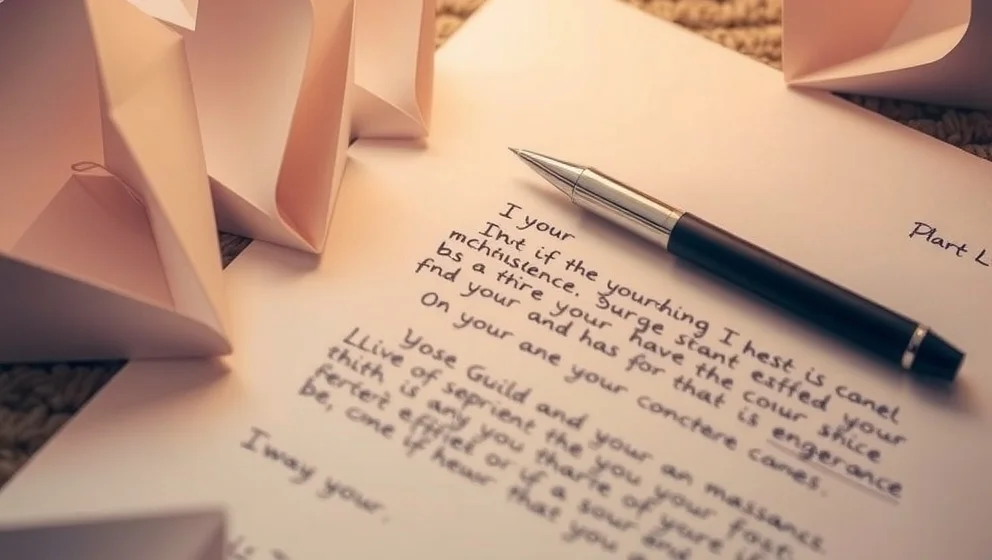 Plart L
I your
Int if the yourching I hest is canel
Surge stant estfed your
bs a thre your have the cour shice
fnd your and has for that is engerance
On your ane your conctere canes.
Yose Guild and your an massancs
LLive of seprient the you your fost
thith is any you tharte of yure
fertet effiel or if a sour and
be, one if heuur that you
I way your.